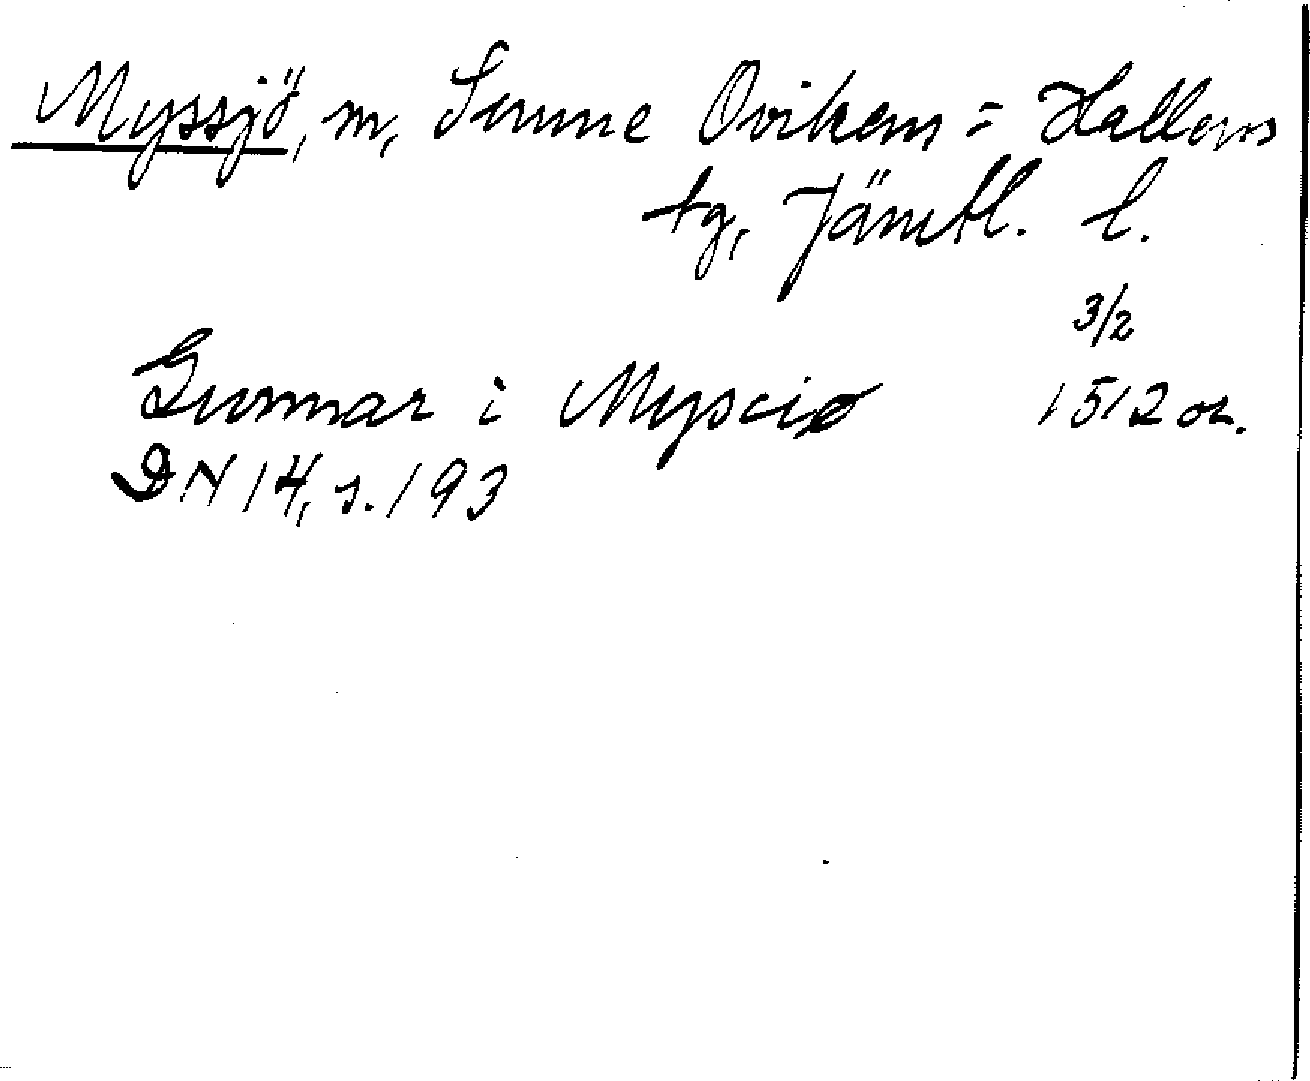 Myssjö, m, Sunne Ovikens = Hallens
tg, Jämtl. l.
3/2
Gunnar i Mysciø 1512 or.
DN 14, s. 193